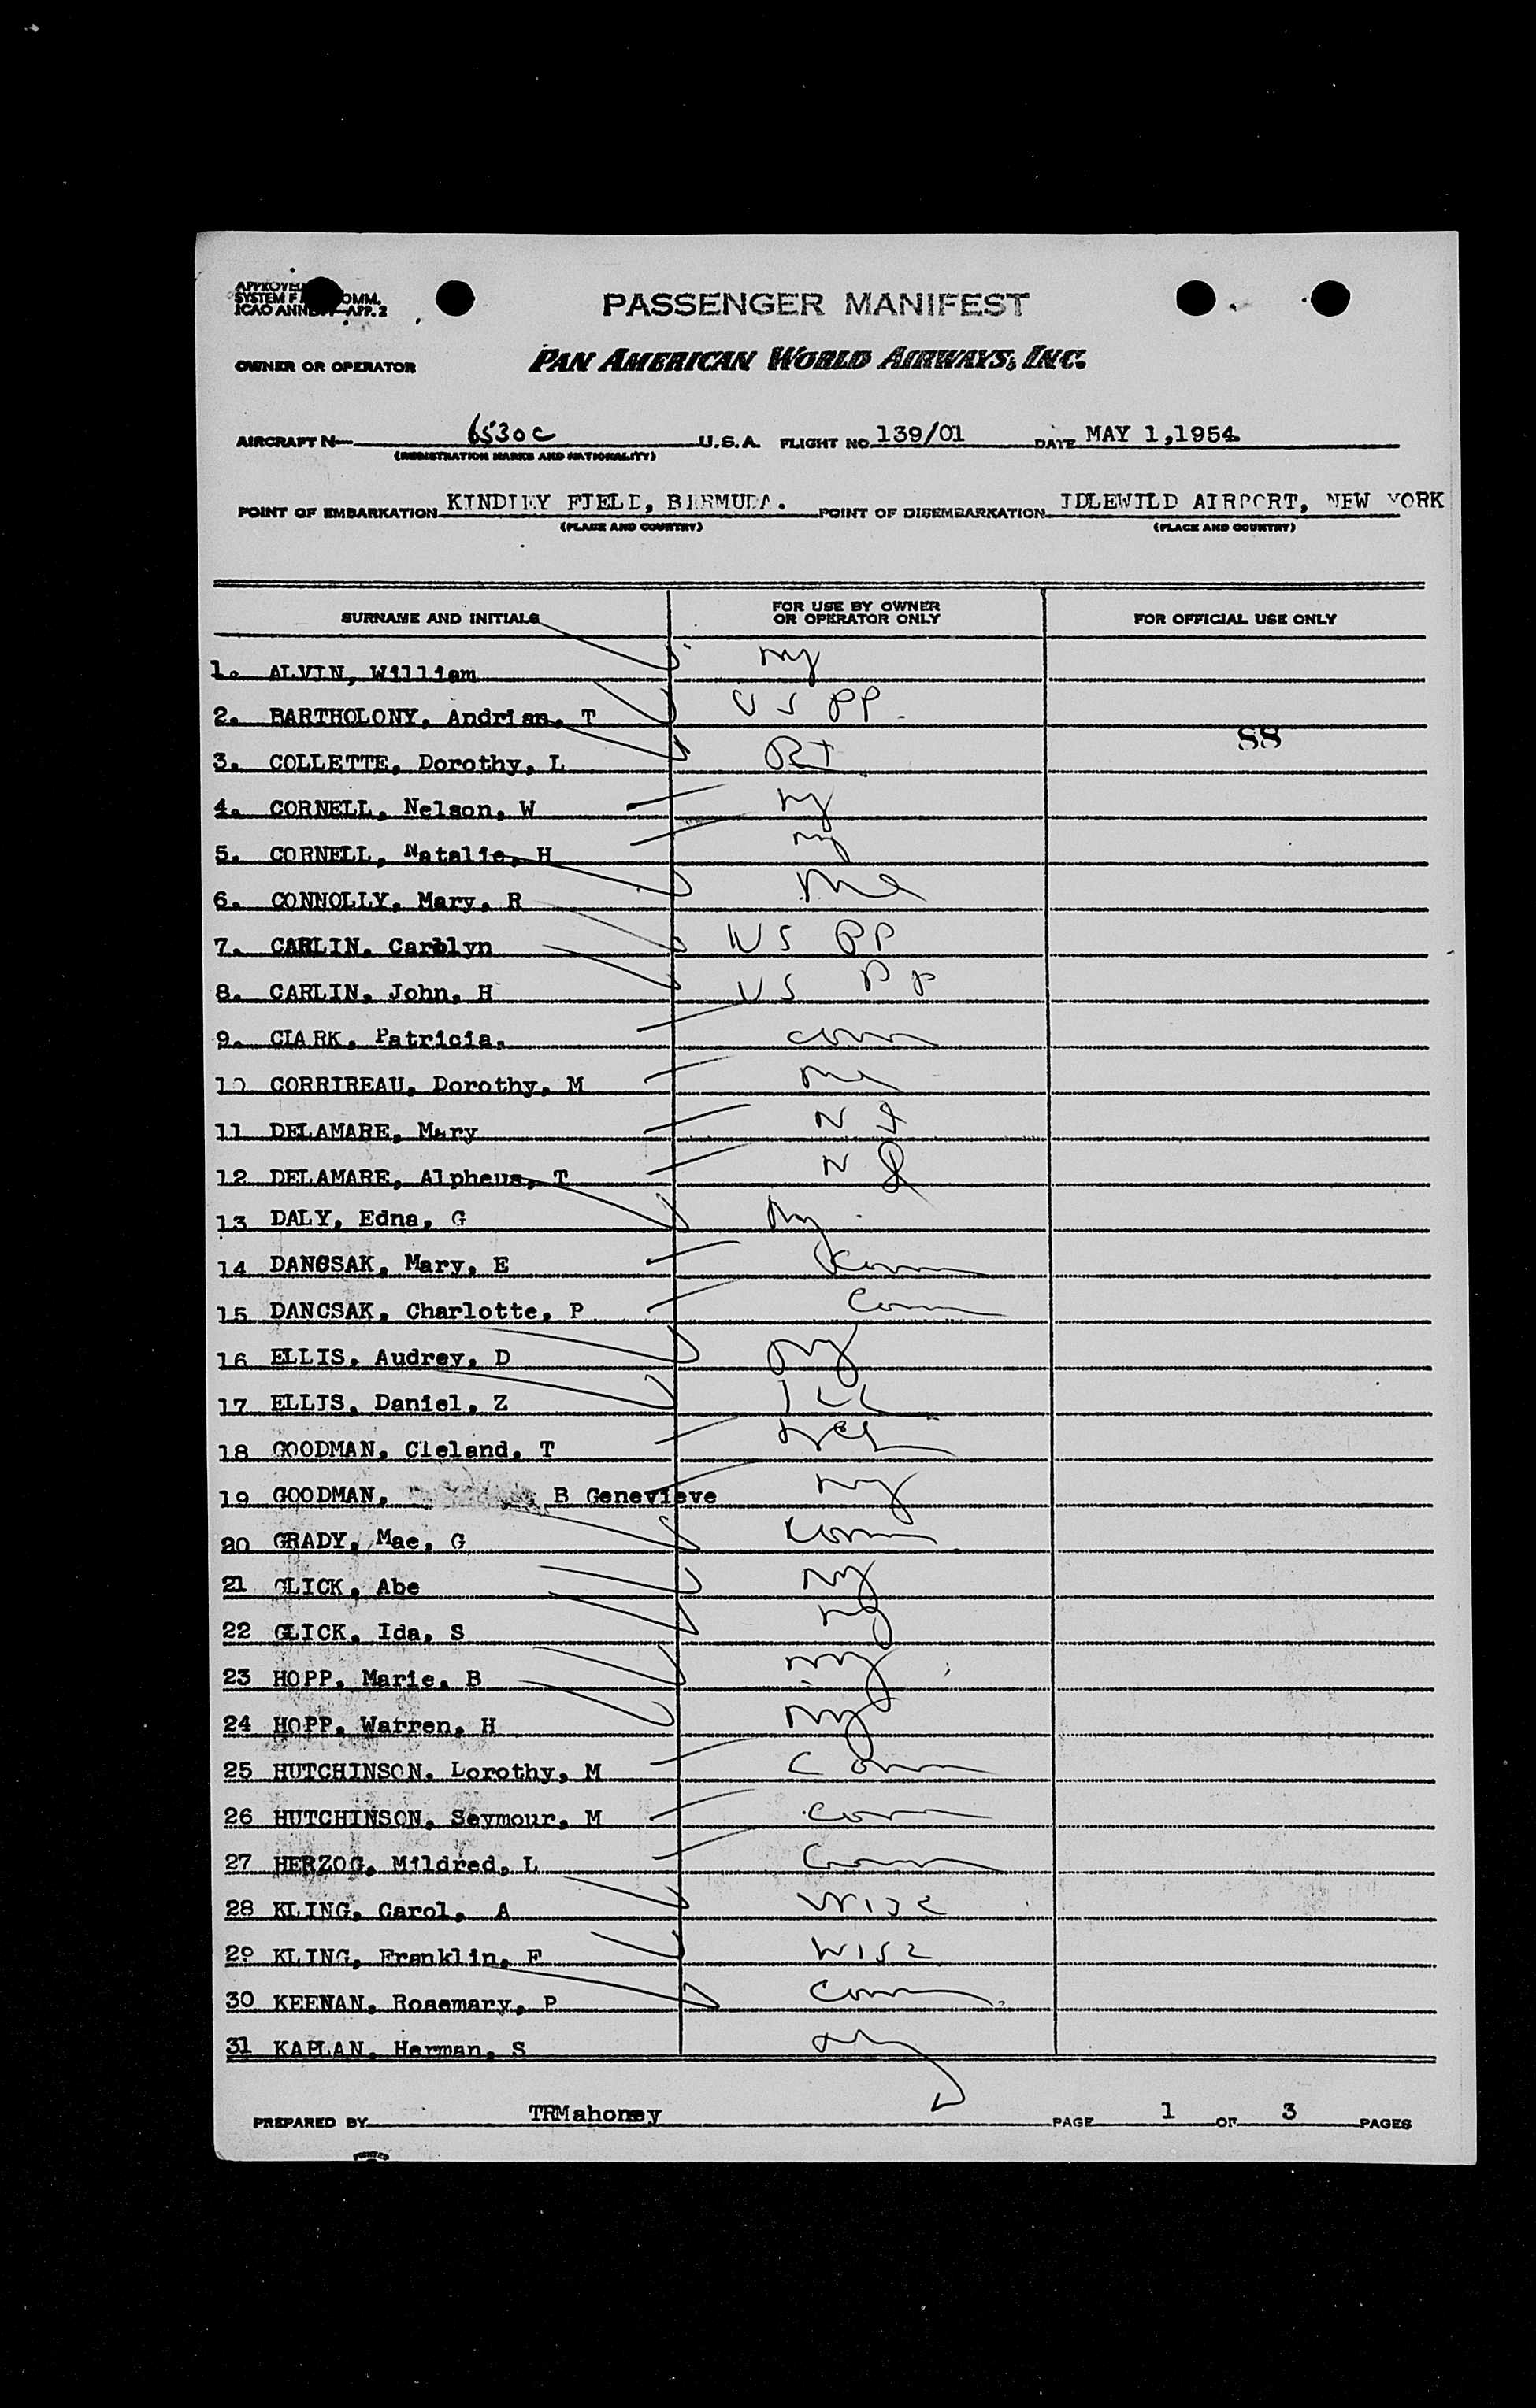 PASSENGER MANIFEST
OWNER OR OPERATOR PAN AMERICAN WORLD AIRWAYS, INC.
AIRCRAFT N 6530C U.S.A. FLIGHT NO. 139/01 DATE MAY 1, 1954
(REGISTRATION MARKS AND NATIONALITY)
POINT OF EMBARKATION KINDLEY FIELD, BERMUDA. POINT OF DISEMBARKATION IDLEWILD AIRPORT, NEW YORK
(PLACE AND COUNTRY) (PLACE AND COUNTRY)
SURNAME AND INITIALS FOR USE BY OWNER OR OPERATOR ONLY FOR OFFICIAL USE ONLY
1. ALVIN, William ny
2. BARTHOLONY, Andrian, T US PP
88
3. COLLETTE, Dorothy, L RI
4. CORNELL, Nelson, W ny
5. CORNELL, Natalie, H ny
6. CONNOLLY, Mary, R
7. CARLIN, Carolyn US PP
8. CARLIN, John, H US PP
9. CLARK, Patricia, conn
10 CORRIREAU, Dorothy, M
11 DELAMARE, Mary
12 DELAMARE, Alpheus, T
13 DALY, Edna, G ny
14 DANCSAK, Mary, E Conn
15 DANCSAK, Charlotte, P Conn
16 ELLIS, Audrey, D ny
17 ELLIS, Daniel, Z
18 GOODMAN, Cleland, T
19 GOODMAN, B Genevieve ny
20 GRADY, Mae, G Conn
21 GLICK, Abe ny
22 GLICK, Ida, S ny
23 HOPP, Marie, B ny
24 HOPP, Warren, H ny
25 HUTCHINSON, Dorothy, M Conn
26 HUTCHINSON, Seymour, M Conn
27 HERZOG, Mildred, L Conn
28 KLING, Carol, A Wisc
29 KLING, Franklin, F Wisc
30 KEENAN, Rosemary, P Conn
31 KAPLAN, Herman, S ny
PREPARED BY TRMahoney PAGE 1 OF 3 PAGES